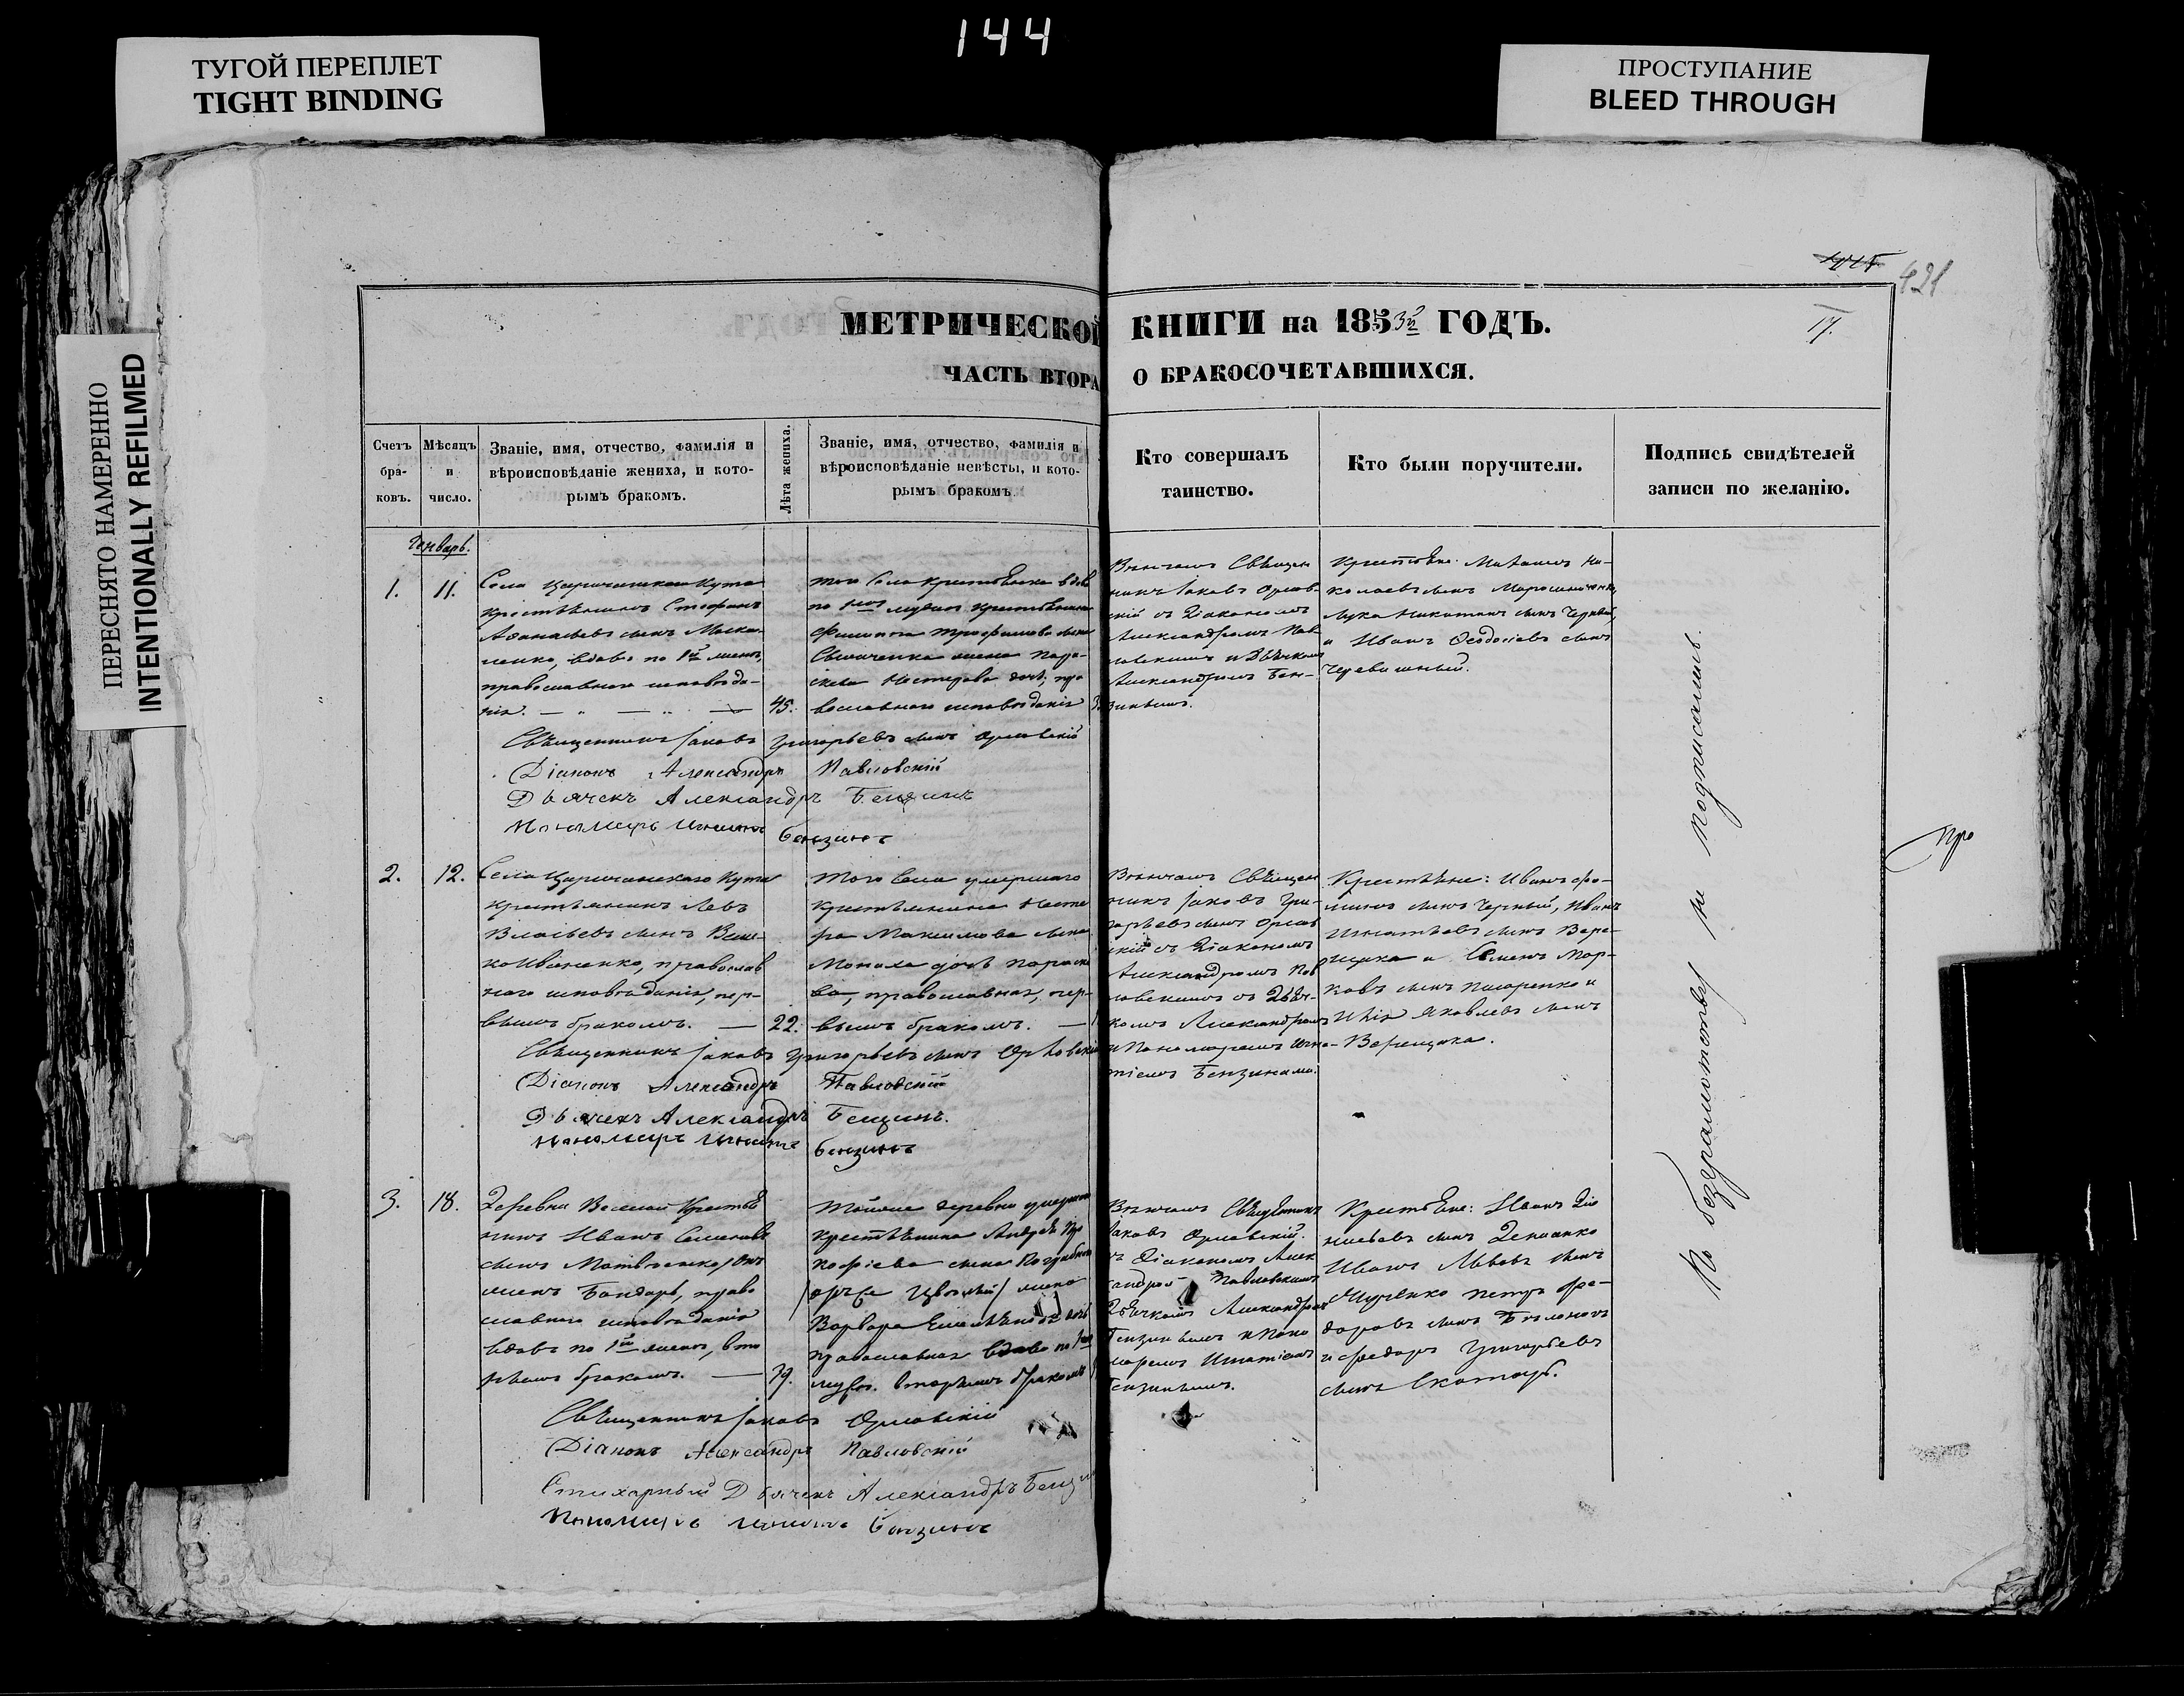 144
ТУГОЙ ПЕРЕПЛЕТ
TIGHT BINDING
ПРОСТУПАНИЕ
BLEED THROUGH
ПЕРЕСНЯТО НАМЕРЕННО
INTENTIONALLY REFILMED
421
17.
МЕТРИЧЕСКОЙ КНИГИ на 1853й ГОДЪ.
ЧАСТЬ ВТОРА О БРАКОСОЧЕТАВШИХСЯ.
Счетъ
бра-
ковъ.
Мѣсяцъ
и
число.
Званіе, имя, отчество, фамилія и
вѣроисповѣданіе жениха, и кото-
рымъ бракомъ.
Лѣта жениха.
Званіе, имя, отчество, фамилія и
вѣроисповѣданіе невѣсты, и кото-
рымъ бракомъ.
Кто совершалъ
таинство.
Кто были поручители.
Подпись свидѣтелей
записи по желанію.
Январь.
1.
11.
Села Царичанскаго Кута
крестьянинъ Стефанъ
Аѳанасьевъ сынъ Моска-
ленко, вдовъ по 1й женѣ,
православнаго исповѣда-
нія.
45.
того Села крестьянка вдова
по мужѣ крестьянинѣ
Филиппа Трофимова сына
жена Пара-
скева Нестерова дочь, пра
вославнаго исповѣданія
Вѣнчалъ Священ
никъ Іаковъ Орлов-
скій съ Діакономъ
Александромъ Пав
ловскимъ и Дьячкомъ
Александромъ Бен-
зинымъ.
Крестьяне: Ни-
колаевъ сынъ
Лука Никитинъ сынъ Черный,
и Иванъ Ѳеодосіевъ сынъ
Священникъ Іаковъ Григорьевъ сынъ Орловскій
Діаконъ Александръ Павловскій
Дьячекъ Александръ Бензинъ
Пономарь Игнатій Бензинъ
2.
12.
Села Царичанскаго Кута
крестьянинъ Левъ
Власьевъ сынъ Вели-
коиваненко, православ
наго исповѣданія, пер-
вымъ бракомъ.
22.
того Села умершаго
крестьянина Несте
ра Максимова сына
Монала дочь Параске
ва, православная, пер-
вымъ бракомъ.
Вѣнчалъ Священ
никъ Іаковъ Гри-
горьевъ сынъ Орлов
скій съ Діакономъ
Александромъ Пав
ловскимъ съ Дьяч-
комъ Александромъ
и Пономаремъ Игна-
тіемъ Бензинами.
Крестьяне: Иванъ Фо-
минъ сынъ Черный, Иванъ
Игнатьевъ сынъ Вере-
щака и Семенъ Мар-
ковъ сынъ Писаренко и
Илія Яковлевъ сынъ
Верещака.
Священникъ Іаковъ Григорьевъ сынъ Орловскій
Діаконъ Александръ Павловскій
Дьячекъ Александръ Бензинъ.
Пономарь Игнатій Бензинъ
3.
18.
Деревни Веселой Крестья
нинъ Иванъ Семеновъ
сынъ Матвѣенко, онъ
женъ Бондарь, право
славнаго исповѣданія
вдовъ по 1й женѣ, вто
рымъ бракомъ.
39.
тойже деревни умершаго
крестьянина Андрея Про
кофіева сына
жена
Варвара Емельянова дочь
православная вдова по 1мъ
мужѣ. вторымъ бракомъ
Вѣнчалъ Священникъ
Іаковъ Орловскій.
съ Діакономъ Алек
сандромъ Павловскимъ
Дьячкомъ Александромъ
Бензинымъ и Поно
маремъ Игнатіемъ
Бензинымъ.
Крестьяне: Иванъ Діо
нисьевъ сынъ
Иванъ Львовъ сынъ
Петръ Фе-
доровъ сынъ
и Федоръ Григорьевъ
сынъ
Священникъ Іаковъ Орловскій
Діаконъ Александръ Павловскій
Стихарный Дьячекъ Александръ Бензи
Пономарь Игнатій Бензинъ
По безграмотству не подписались.
Про